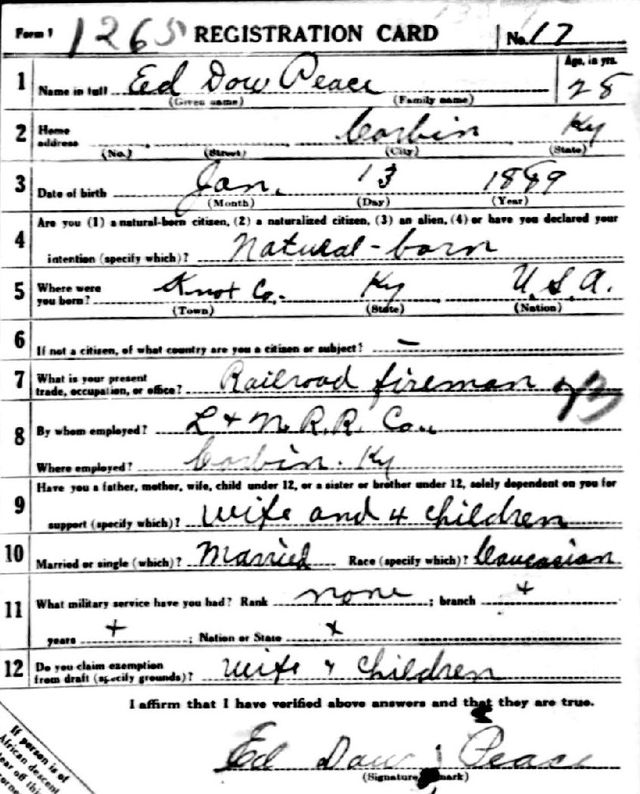 Form 1 1265 REGISTRATION CARD No. 17
1 Name in full Ed Dow Peace Age, in yrs. 28
(Given name) (Family name)
2 Home address Corbin Ky
(No.) (Street) (City) (State)
3 Date of birth Jan. 13 1889
(Month) (Day) (Year)
4 Are you (1) a natural-born citizen, (2) a naturalized citizen, (3) an alien, (4) or have you declared your
intention (specify which)? Natural-born
5 Where were you born? Knox Co. Ky U.S.A.
(Town) (State) (Nation)
6 If not a citizen, of what country are you a citizen or subject? –
7 What is your present trade, occupation, or office? Railroad fireman
8 By whom employed? L & N. R.R. Co.
Where employed? Corbin. Ky
9 Have you a father, mother, wife, child under 12, or a sister or brother under 12, solely dependent on you for
support (specify which)? Wife and 4 children
10 Married or single (which)? Married Race (specify which)? Caucasian
11 What military service have you had? Rank none ; branch x
years x ; Nation or State x
12 Do you claim exemption from draft (specify grounds)? Wife & children
I affirm that I have verified above answers and that they are true.
Ed Dow Peace
(Signature mark)
If person is of
African descent
off this